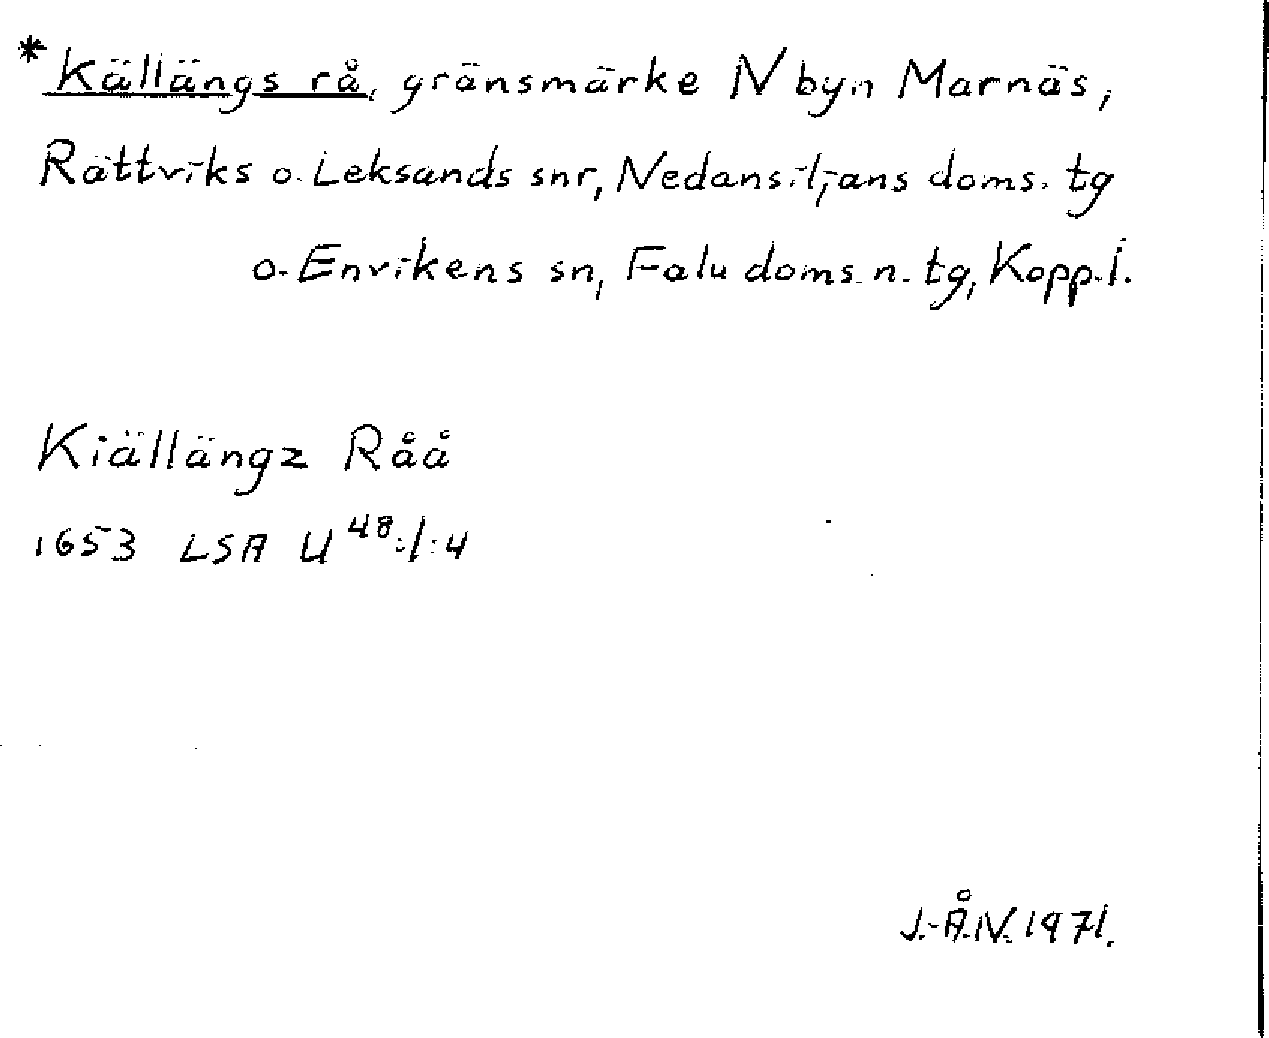 *Källängs rå, gränsmärke N byn Marnäs,
Rättviks o. Leksands snr, Nedansiljans doms. tg
o. Envikens sn, Falu doms. n. tg, Kopp. l.
Kiällängz Råå
1653 LSA U 48:1:4
J.-Å.N. 1971.